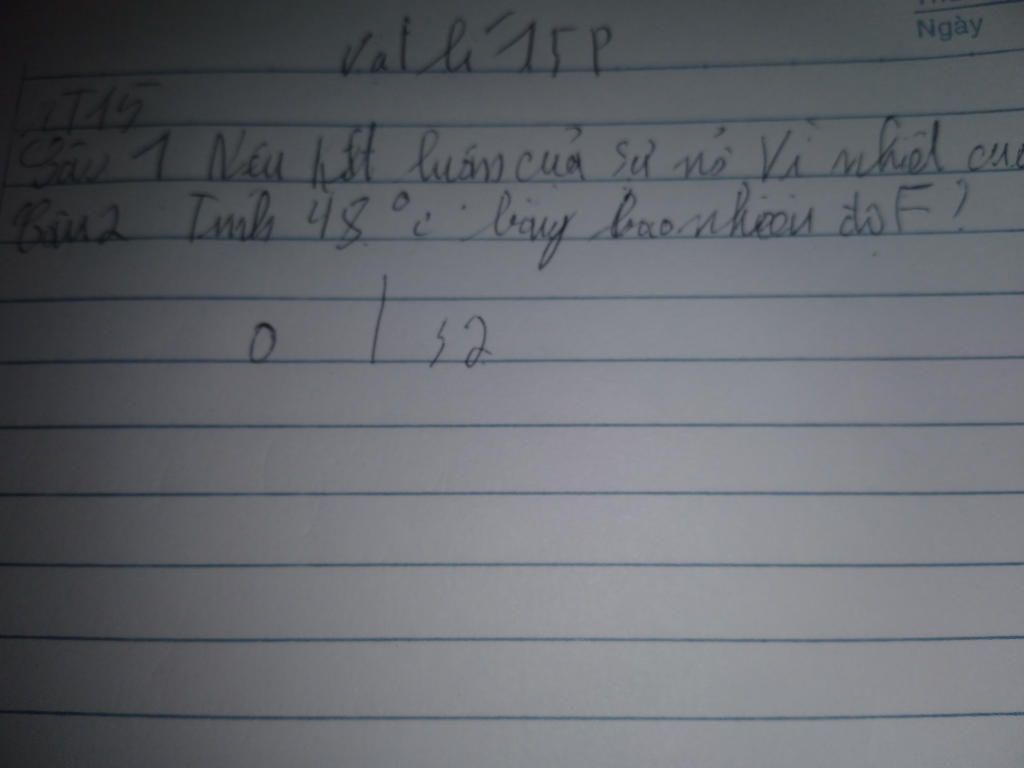 Ngày
Vat lí 15P
T15
Câu 1 Nêu kết luân của sư nở Vì nhiêt cu
Câu 2 Tính 48°c bằng bao nhiêu đô F?
0 | 32